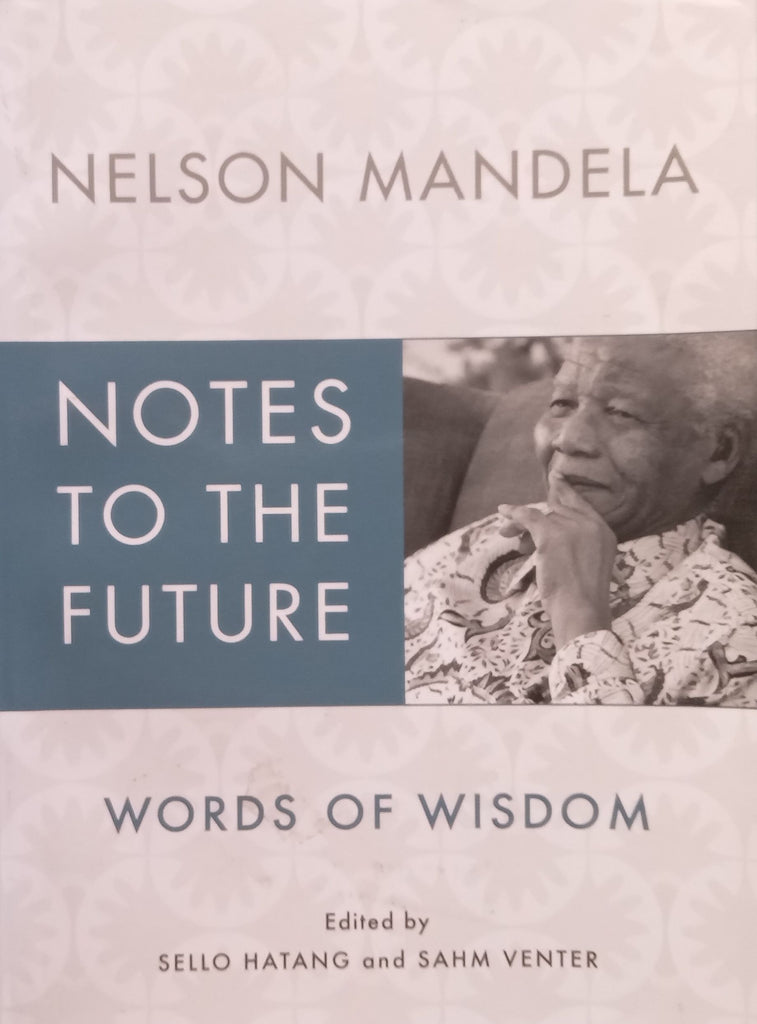 NELSON MANDELA
NOTES
TO THE
FUTURE
WORDS OF WISDOM
Edited by
SELLO HATANG and SAHM VENTER